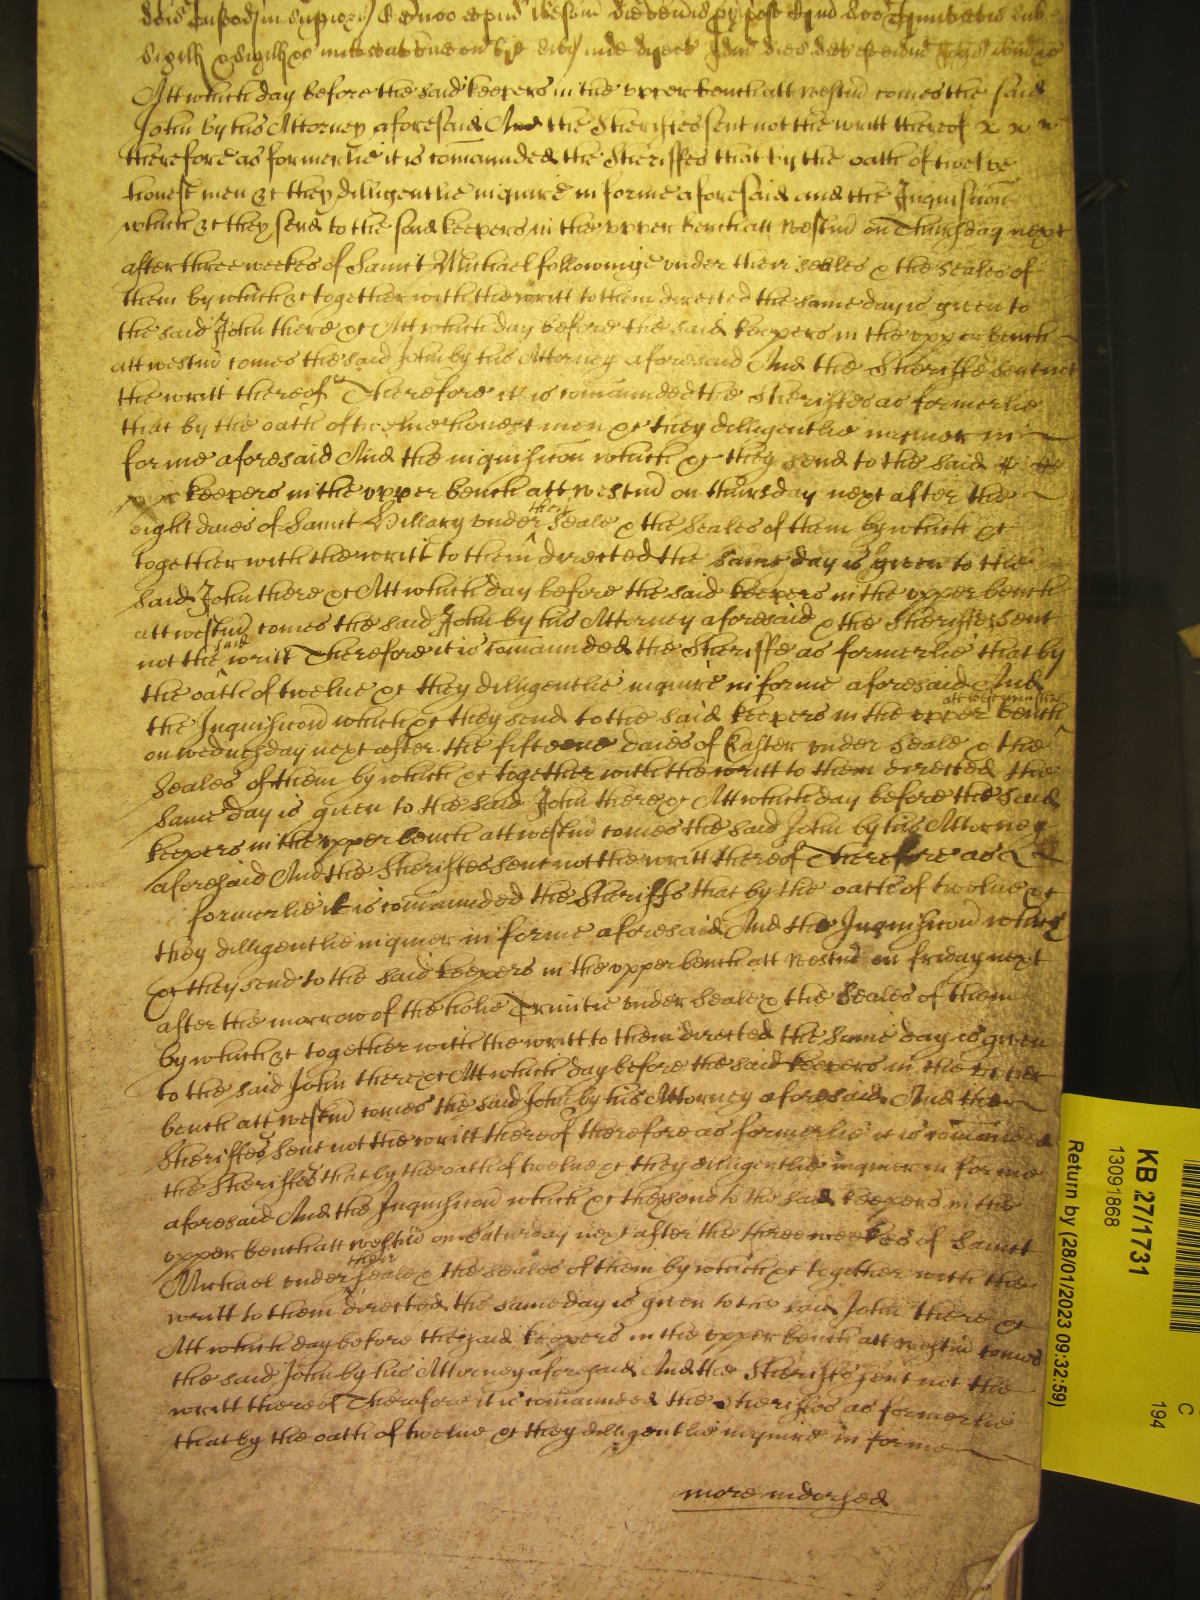 Att which day before the said keepers in the upper bench att westm̄ comes the said
John by his Attorney aforesaid And the Sheriffes sent not the writt thereof x x x
therefore as formerlie it is com̄aunded the Sheriffes that by the oath of twelve
honest men &c they dilligentlie inquire in forme aforesaid and the Inquisic̄on
which &c they send to the said keepers in the upper bench att westm̄ on Thursday next
after three weekes of Saint Michael followinge under their seales & the seales of
them by which &c together with the writt to them directed the same day is given to
the said John there &c Att which day before the said keepers in the upper bench
att westm̄ comes the said John by his Attorney aforesaid And the Sheriffe sent not
the writt thereof Therefore it is com̄aunded the Sheriffes as formerlie
that by the oath of twelve honest men &c they dilligentlie inquier in
forme aforesaid And the inquisic̄on which &c they send to the said
keepers in the upper bench att westm̄ on thursday next after the
eight daies of Saint Hillary under their Seale & the seales of them by which &c
together with the writt to them directed the same day is given to the
said John there &c Att which day before the said keepers in the upper bench
att westm̄ comes the said John by his Attorney aforesaid & the Sheriffes sent
not the said writt Therefore it is com̄aunded the Sheriffe as formerlie that by
the oath of twelve &c they dilligentlie inquire in forme aforesaid And
the Inquisic̄on which &c they send to the said keepers in the upper bench att westminster
on wednesday next after the fifteene daies of Easter under Seale & the
Seales of them by which &c together with the writt to them directed the
same day is given to the said John there &c Att which day before the said
keepers in the upper bench att westm̄ comes the said John by his Attorney
aforesaid And the Sheriffes sent not the writt thereof Therefore as
formerlie it is com̄aunded the Sheriffs that by the oath of twelve &c
they dilligentlie inquier in forme aforesaid And the Inquisic̄on which
&c they send to the said keepers in the upper bench att westm̄ on friday next
after the morrow of the holie Trinitie under Seale & the Seales of them
by which &c together with the writt to them directed the same day is given
to the said John there &c Att which day before the said keepers in the upper
bench att westm̄ comes the said John by his Attorney aforesaid And the
Sheriffes sent not the writt thereof therefore as formerlie it is com̄aunded
the Sheriffes that by the oath of twelve &c they dilligentlie inquier in forme
aforesaid And the Inquisic̄on which &c they send to the said keepers in the
upper bench att westm̄ on Saturday next after the three weekes of Saint
Michael under their seale & the seales of them by which &c together with the
writt to them directed the same day is given to the said John there &c
Att which day before the said keepers in the upper bench att westm̄ comes
the said John by his Attorney aforesaid And the Sheriffs sent not the
writt thereof Therefore it is com̄aunded the Sheriffes as formerlie
that by the oath of twelve &c they dilligentlie inquire in forme
more indorsed
KB 27/1731
13091868
Return by (28/01/2023 09:32:59)
C
194